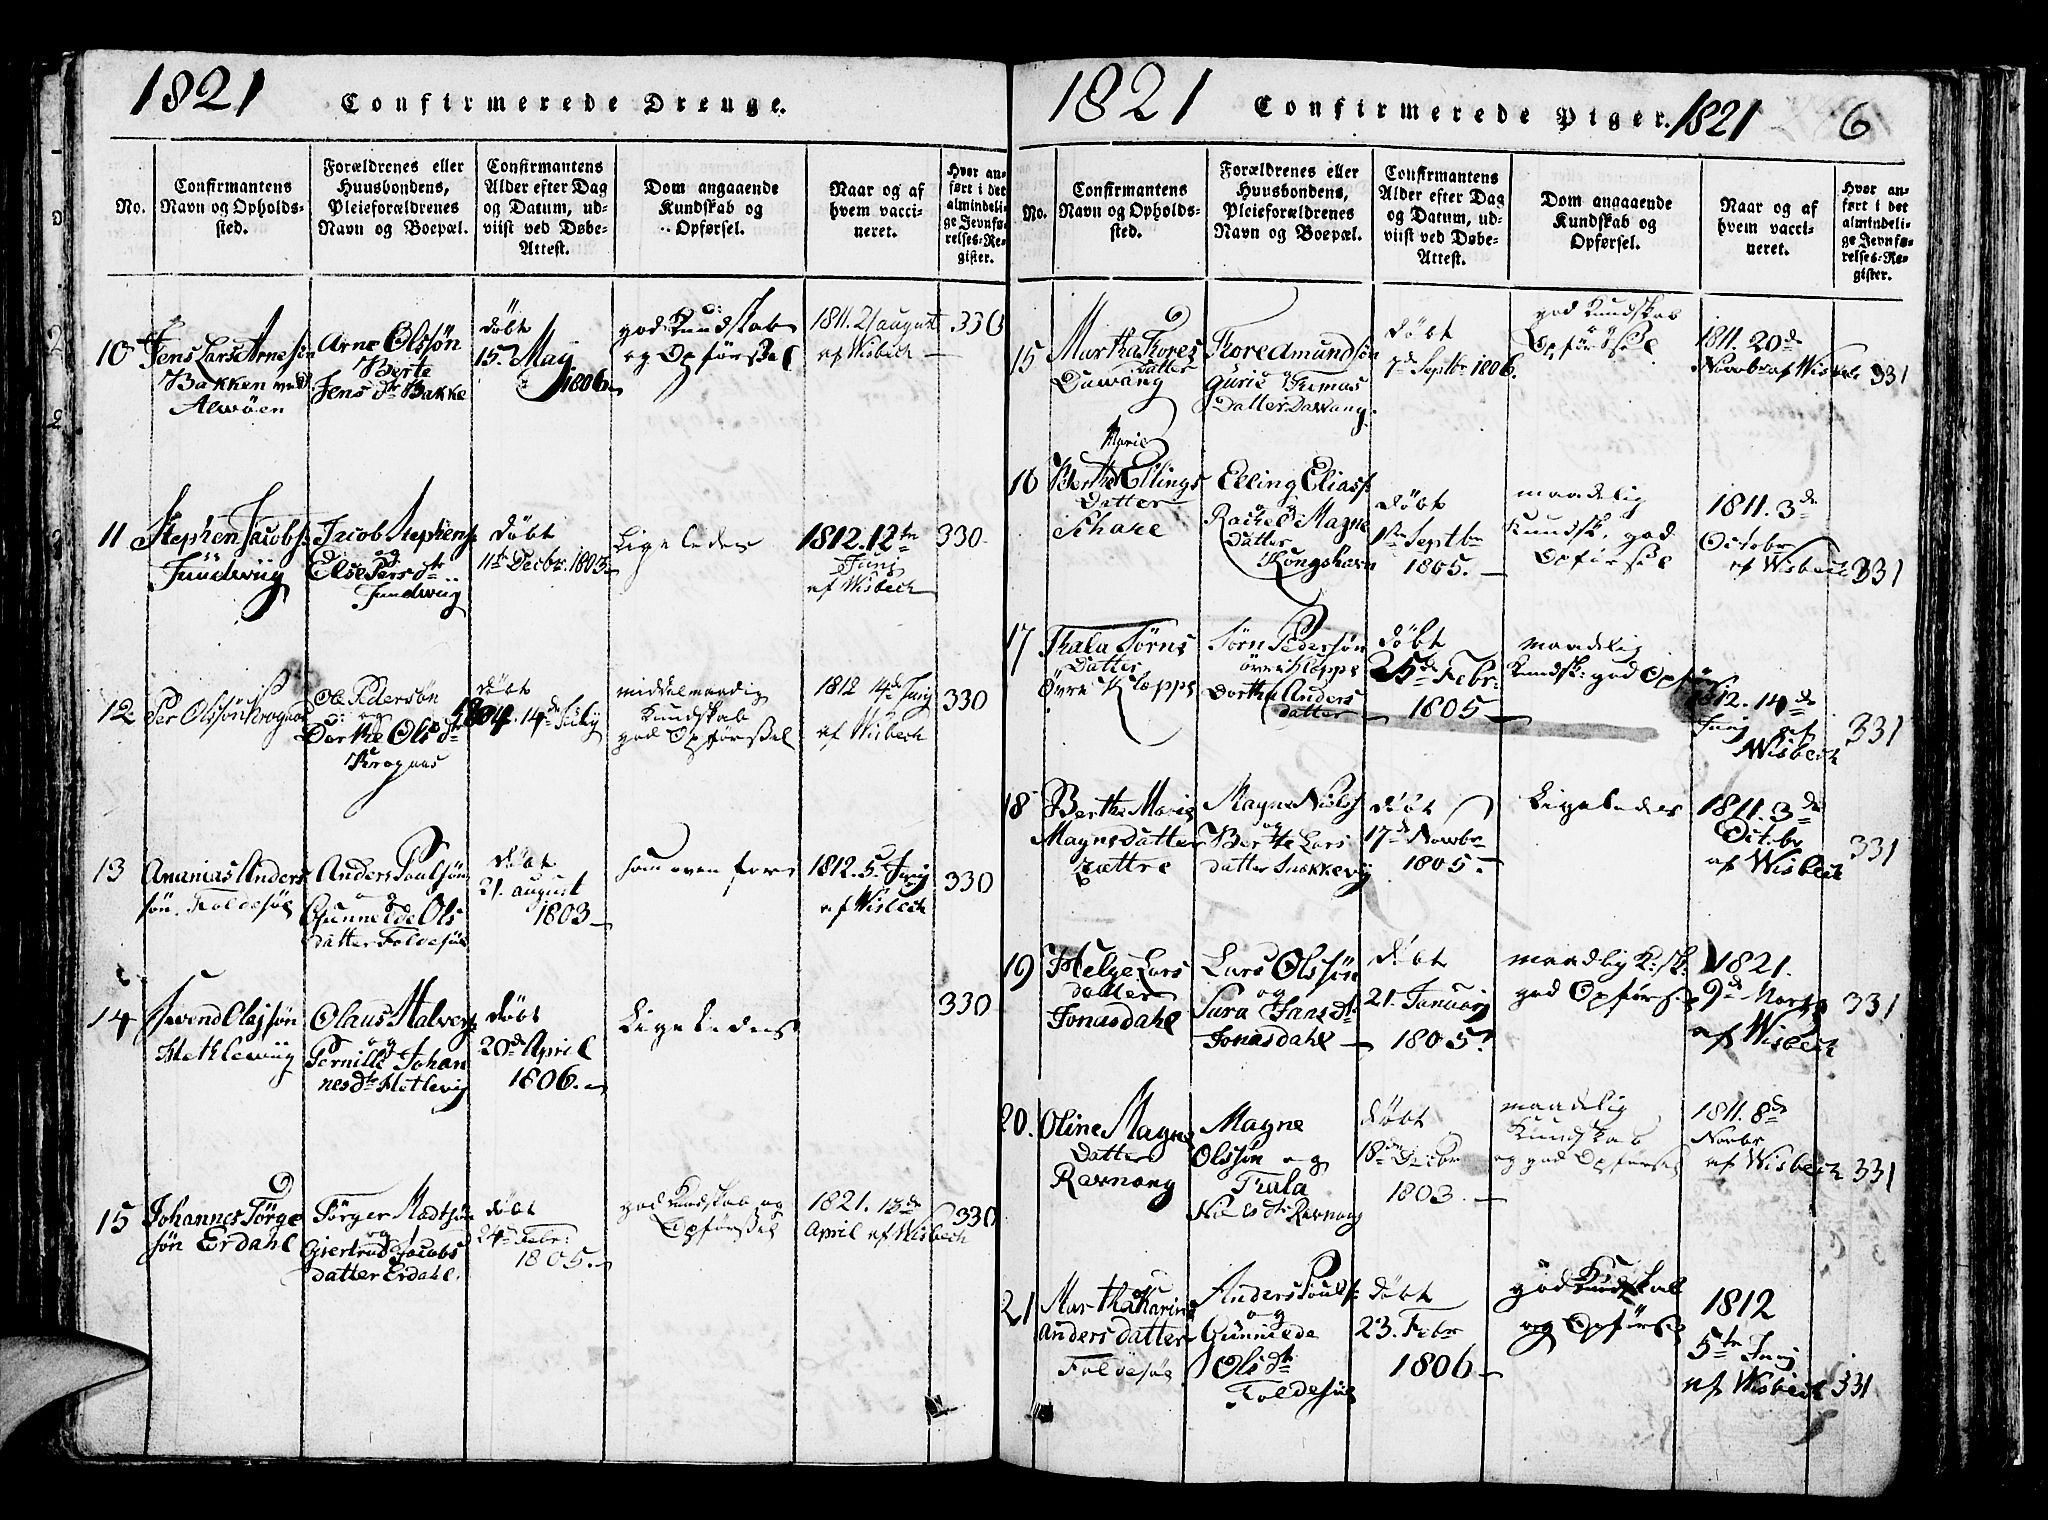 1821 Confirmerede Drenge.
No.
Confirmantens Navn og Opholdssted.
Forældrenes eller Huusbondens, Pleieforældrenes Navn og Boepæl.
Confirmantens Alder efter Dag og Datum, udviist ved Døbe-Attest.
Dom angaaende Kundskab og Opførsel.
Naar og af hvem vaccineret.
Hvor anført i det almindelige Jevnførelses-Register.
10
Jens Lars Arnesøn
Bakken ved
Alwöen
Arne Olssön
Berte
Jens dr Bakke
döbt
15. Maij
1806.
god Kundskab
og Opförsel
1811. 21 august
af Wisbech
330
11
Stephen Jacobs:
Jacob Stephens:
og
Else Pers dtr
döbt
11te Decbr. 1803
Ligeledes
1812. 12te
Junij
af Wisbech
330.
12
Per Olssön Krognæs
Ole Pedersön
og
Dorthe Ols dtr
Krognæs
döbt
1804. 14de July
middelmaadig
Kundskab
god Opförsel
1812 4de Junij
af Wisbech
330
13
Ananias Anders
sön. Foldesöe
Anders Poulsön
og
Gunnelde Ols
datter Foldesöe
döbt
21. august
1803
som oven for
1812. 5. Junij
af Wisbech
330
14
Svend Olajsön
Hetlewiig
Olaus Halvers:
og
Pernille Johan
nesdtr Hetlevig
döbt
20de April
1806.
Ligeledes
330
15
Johannes Törge
sön Erdahl
Törger Madtsön
og
Giertrud Jacobs
datter Erdahl.
döbt
24de Febr:
1805.
god Kundskab og
Opförsel
1821. 13de
April af Wisbech
330
1821 Confirmerede Piger. 1821 6
No.
Confirmantens Navn og Opholdssted.
Forældrenes eller Huusbondens, Pleieforældrenes Navn og Boepæl.
Confirmantens Alder efter Dag og Datum, udviist ved Døbe-Attest.
Dom angaaende Kundskab og Opførsel.
Naar og af hvem vaccineret.
Hvor anført i det almindelige Jevnførelses-Register.
15
Martha Thores
datter
Dawang
Thore Amundsön
og
Gurie Thomas
datter Dawang.
döbt
7de Septbr 1806.
god Kundskab
og
Opförsel
1811. 20de
Novbr af Wisbech
331
16
Marie
Berthe Ellings
Datter
Elling Eliass:
og
Rachel Magne
datter
Kongshavn
döbt
1ste Septbr
1805.
maadelig
Kundsk, god
Opförsel
1811. 3de
Octobr
af Wisbech
331
17
Thala Sörns
Datter
Övre Kleppe
Sörn Pedersön
övre Kleppe
Dorthe Anders
datter
döbt
25de Febr:
1805
maadelig
Kundsk: god Opför
1812. 14de
Junij af
Wisbech
331
18
Berthe Marie
Magnsdatter
Magne Nielss:
og
Berthe Lars
datter
döbt
17de Novbr
1805.
Ligeledes
1811. 3de
Octobr
af Wisbech
331
19
Helge Lars
datter
Jonasdahl
Lars Olssön
og
Sara Hans dtr
Jonasdahl
döbt
21. Januarij
1805.
maadlig K:sk:
god Opförsel
1821.
9de Marts
af Wisbech
331
20.
Oline Magne
Datter
Ravnang
Magne
Olssön og
Thala
Niels dtr Ravnang
döbt
18de Decbr
1803.
maadelig
Kundskab
og god Opförsel
1811. 8de
Novbr
af Wisbech
331
21
Martha Karine
Anders datter
Foldesöe
Anders Pouls:
og
Gunnede
Ols dtr
Foldesöe
Döbt
23. Febr
1806
god Kundskab
og Opförsel
1812
5te Junij
af Wisbech
331